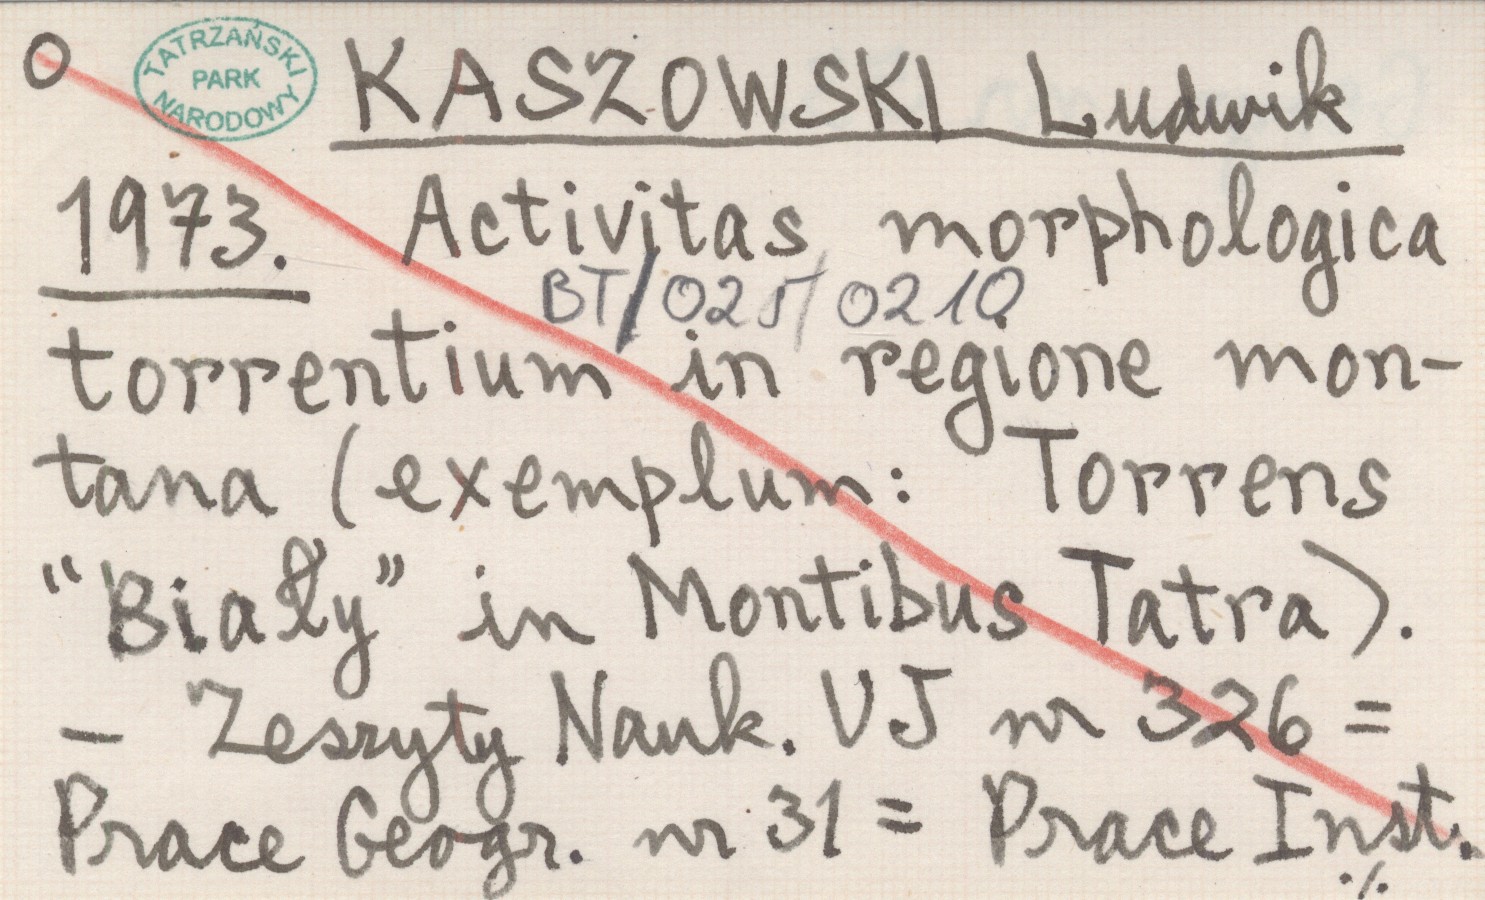 O
TATRZAŃSKI
PARK
NARODOWY
KASZOWSKI Ludwik
1973. Activitas morphologica
BT/025/0210
torrentium in regione mon-
tana (exemplum: Torrens
"Biały" in Montibus Tatra).
- Zeszyty Nauk. UJ nr 326 =
Prace Geogr. nr 31 = Prace Inst.
./.